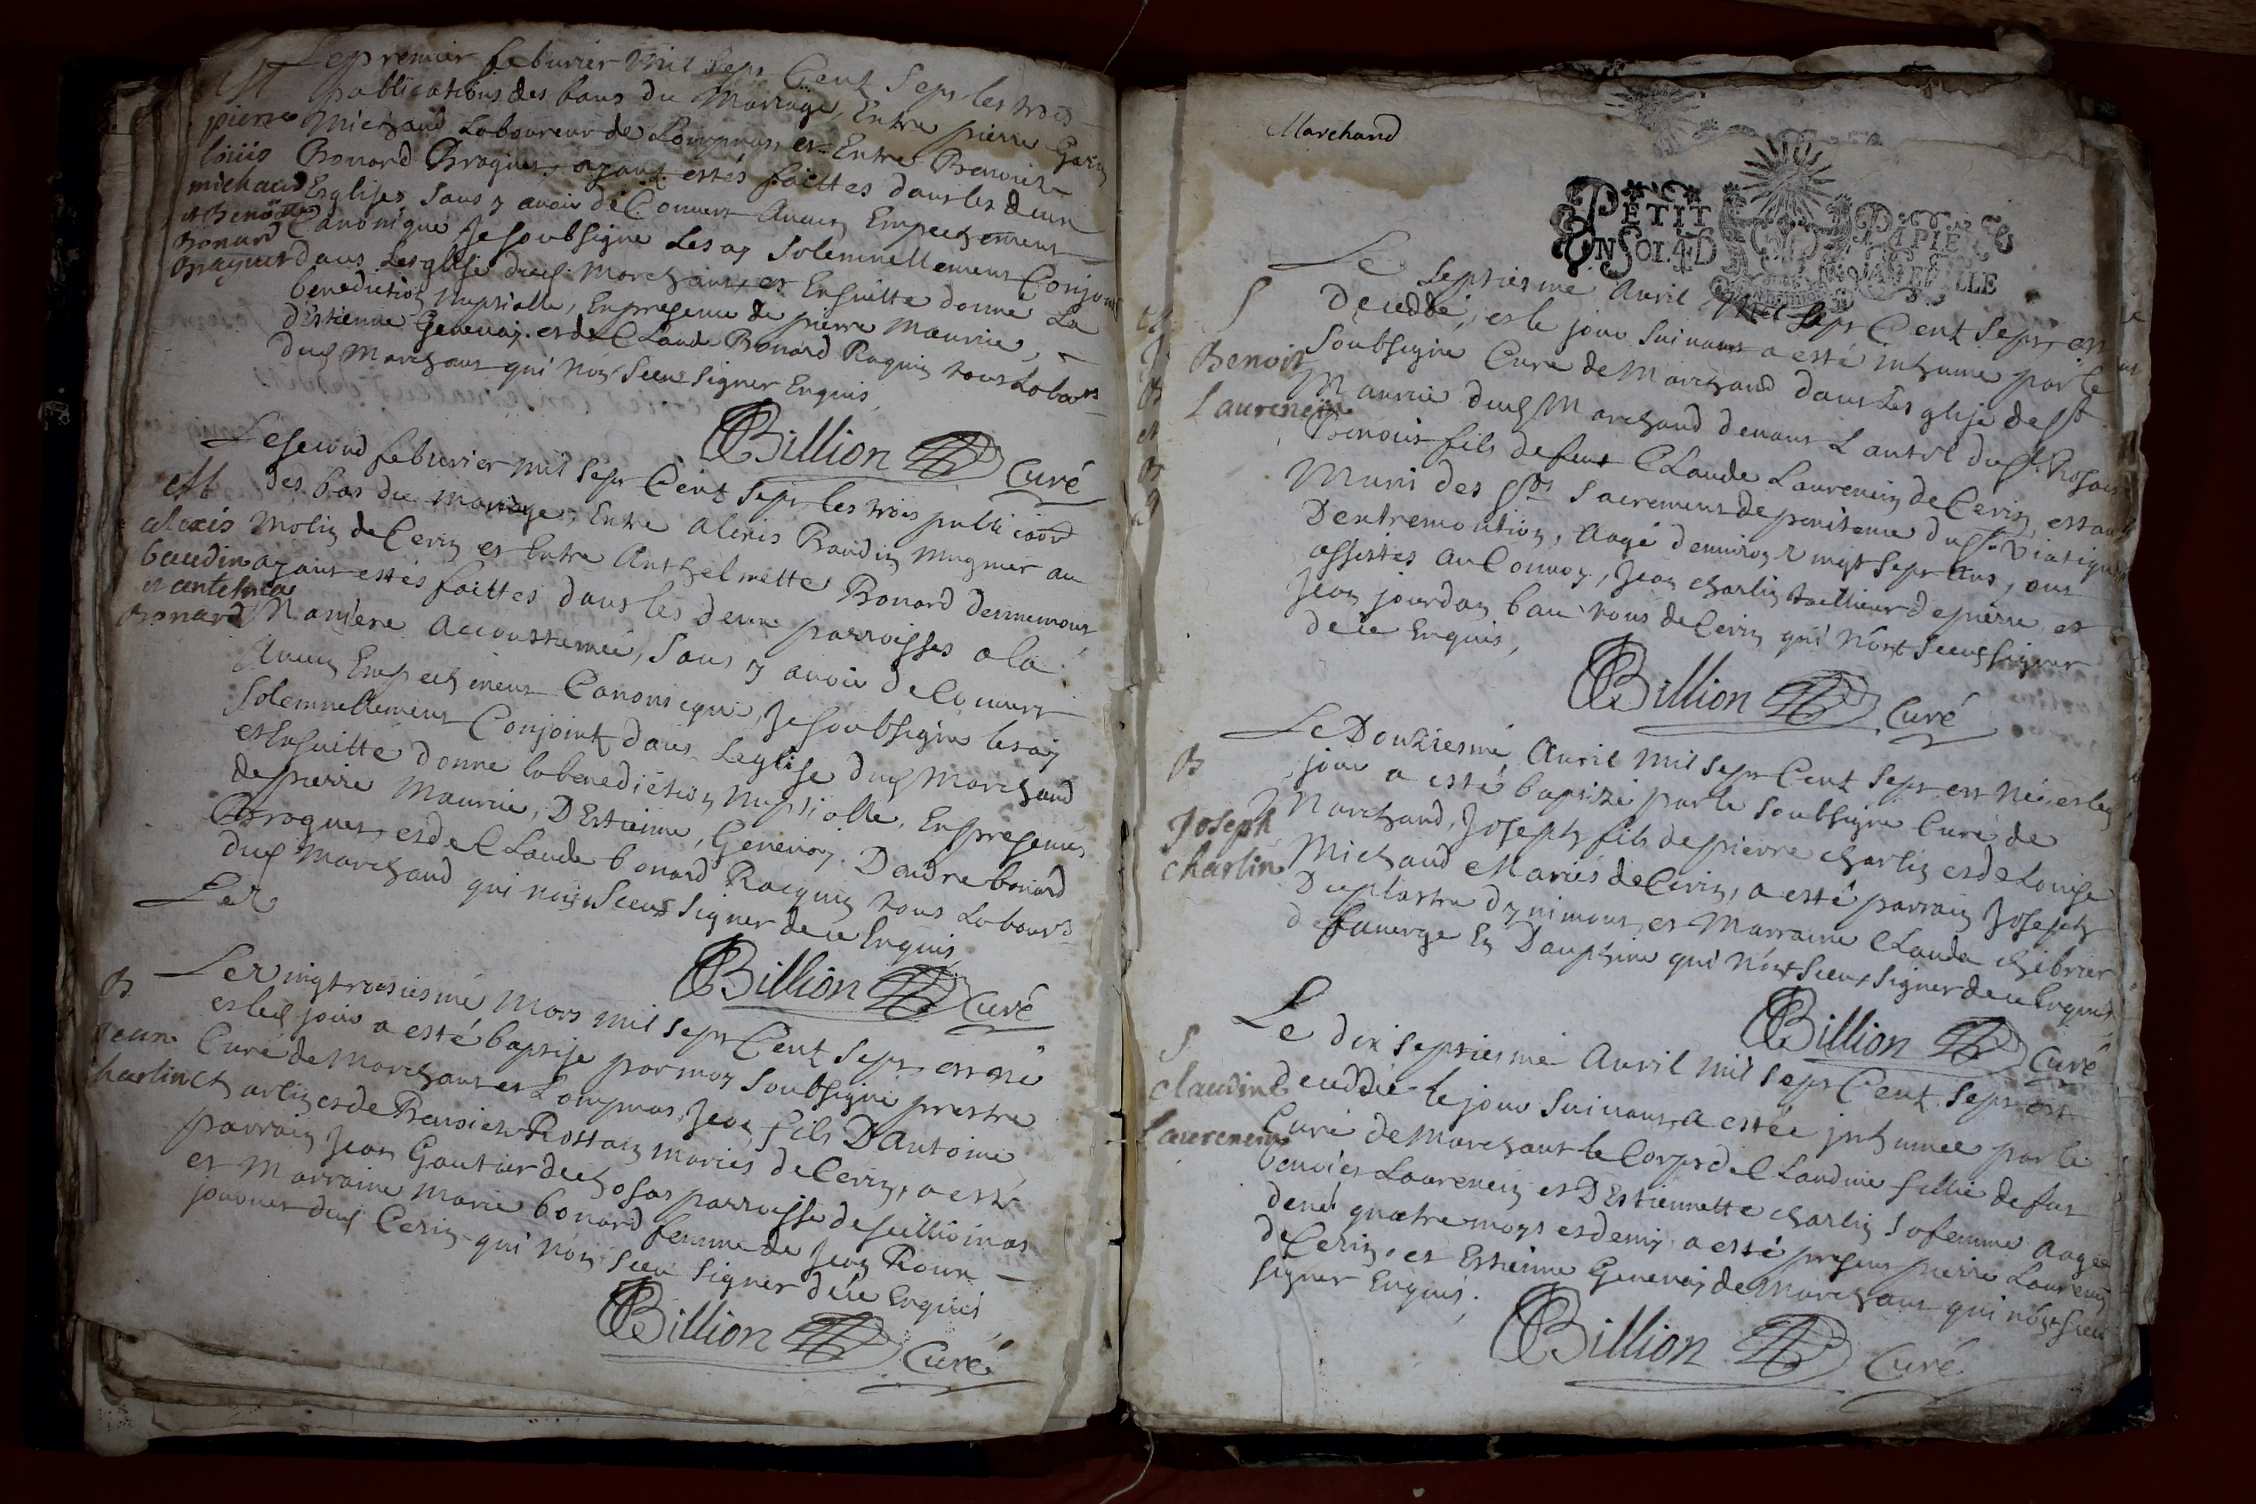 Le premier feburier mil sept Cent Sept les trois
M publications des bans du Mariage, Entre pierre
pierre Michaud Laboureur de Lompnas, et Entre Benoiste
loüis Bonard Braguet, ayant estés faittes dans les deux
michaud Esglises, Sans y avoir décOuvert Aucun Empechement
et benoitte Canonique Je soubsigné Les ay Solemnellement Conjoint
Bonard
braguet dans Lesglise dud. Marchant, et Ensuitte donné La
benediction Nuptialle, En presence de pierre Maurice,
d'Estienne Genevay, et de Claude Bonard Raquin tous Labors
dud Marchant qui N'ont Sceu Signer Enquis
Billion Curé
Le second feburier mil Sept Cent Sept les trois publicaõns
M des bans du mariage, Entre Alexis Baudin Mugnier au
alexis Molin de Cerin et Entre Anthelmette Bonard
baudin ayant estés faittes dans les deux parroisses a la
et antelmea
Bonard Maniere Accoustumée, Sans y avoir decouvert
Aucun Empechement Canonique, Je soubsigné les ay
Solemnellement Conjoint dans Leglise dud Marchand
et Ensuitte donné la benediction Nuptialle, En presence
de pierre Maurice, D'Estienne, Genevay, D'andre bonard
Braguet, et de Claude bonard Racquin tous Labours
dud Marchand qui n'ont Sceus Signer de ce Enquis
Le v
Billion Curé
B Le vingt troisiesme Mars mil sept Cent Sept, est né
et led jour a esté baptisé par moy Soubsigné prestre
Jean Curé de Marchant et Lompnas, Jean fils D'Antoine
charlin Charlin et de Benoiste Rostain mariés de Cerin, a esté
parrain Jean Gautier de parroisse de seillionas
et Marraine Marie bonard femme de Jean Roux
dud Cerin qui N'ont Sceu Signer de ce Enquis
Billion Curé
Marchand
PETIT PAPIER
UN SOL 4 D LA FEUILLE
Le Septiesme Avril Mil Sept Cent Sept, est
S decedde, et le jour Suivant a esté inhumé par le
Benoit Soubsigné Curé de Marchand dans Lesglise de St
Laurencin Maurice dud Marchand devant L'autel du St Rosaire
Benoist fils de feu Claude Laurencin de Cerin, estant
Muni des Sts Sacrements de penitence du St Viatique
D'extremontion, Aagé d'environ vingt Sept Ans, ont
assistés Au Convoy, Jean charlin taillieur de pierre et
Jean jourdan bau tous de Cerin qui N'ont Sceus Signer
de ce Enquis,
Billion Curé
B Le Douziesme Avril Mil Sept Cent Sept est né, et led
jour a esté baptisé par le Soubsigné Curé de
Joseph Marchand, Joseph fils de pierre charlin et de Louise
charlin Michaud Mariés de Cerin, a esté parrain Joseph
Duplastre et Marraine Claude chibrier
de faverge En Dauphiné qui N'ont Sceu Signer de ce Enquis
Billion Curé
Le dix septiesme Avril Mil Sept Cent Sept est
S deceddée le jour Suivant a estée inhumée par le
claudine Curé de Marchant le Corps de Claudine fillie de feu
Laurencin benoist Laurencin et D'Estiennette charlin Sa femme Aagée
de quatre moys et demy a esté present pierre Laurencin
de Cerin, et Estienne Genevay de Marchant qui n'ont Sceu
Signer Enquis,
Billion Curé